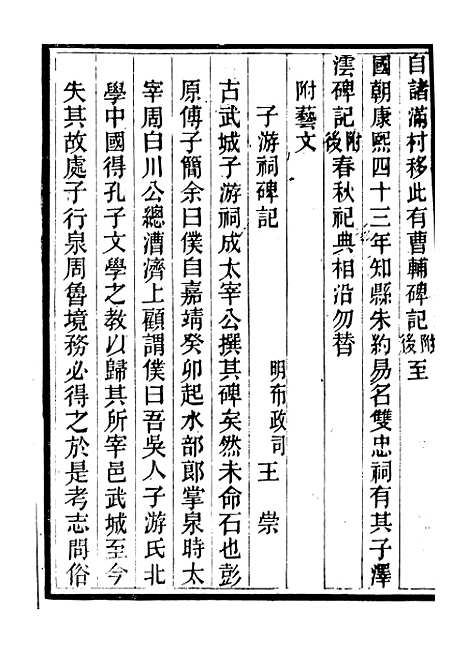 自諸滿村移此有曹輔碑記附後至
國朝康熙四十三年知縣朱約易名雙忠祠有其子澤
澐碑記附後春秋祀典相沿勿替
附藝文
子游祠碑記 明布政司王崇
古武城子游祠成太宰公撰其碑矣然未命石也彭
原傅子簡余曰僕自嘉靖癸卯起水部郎掌泉時太
宰周白川公總漕濟上顧謂僕曰吾吳人子游氏北
學中國得孔子文學之教以歸其所宰邑武城至今
失其故處子行泉周魯境務必得之於是考志問俗